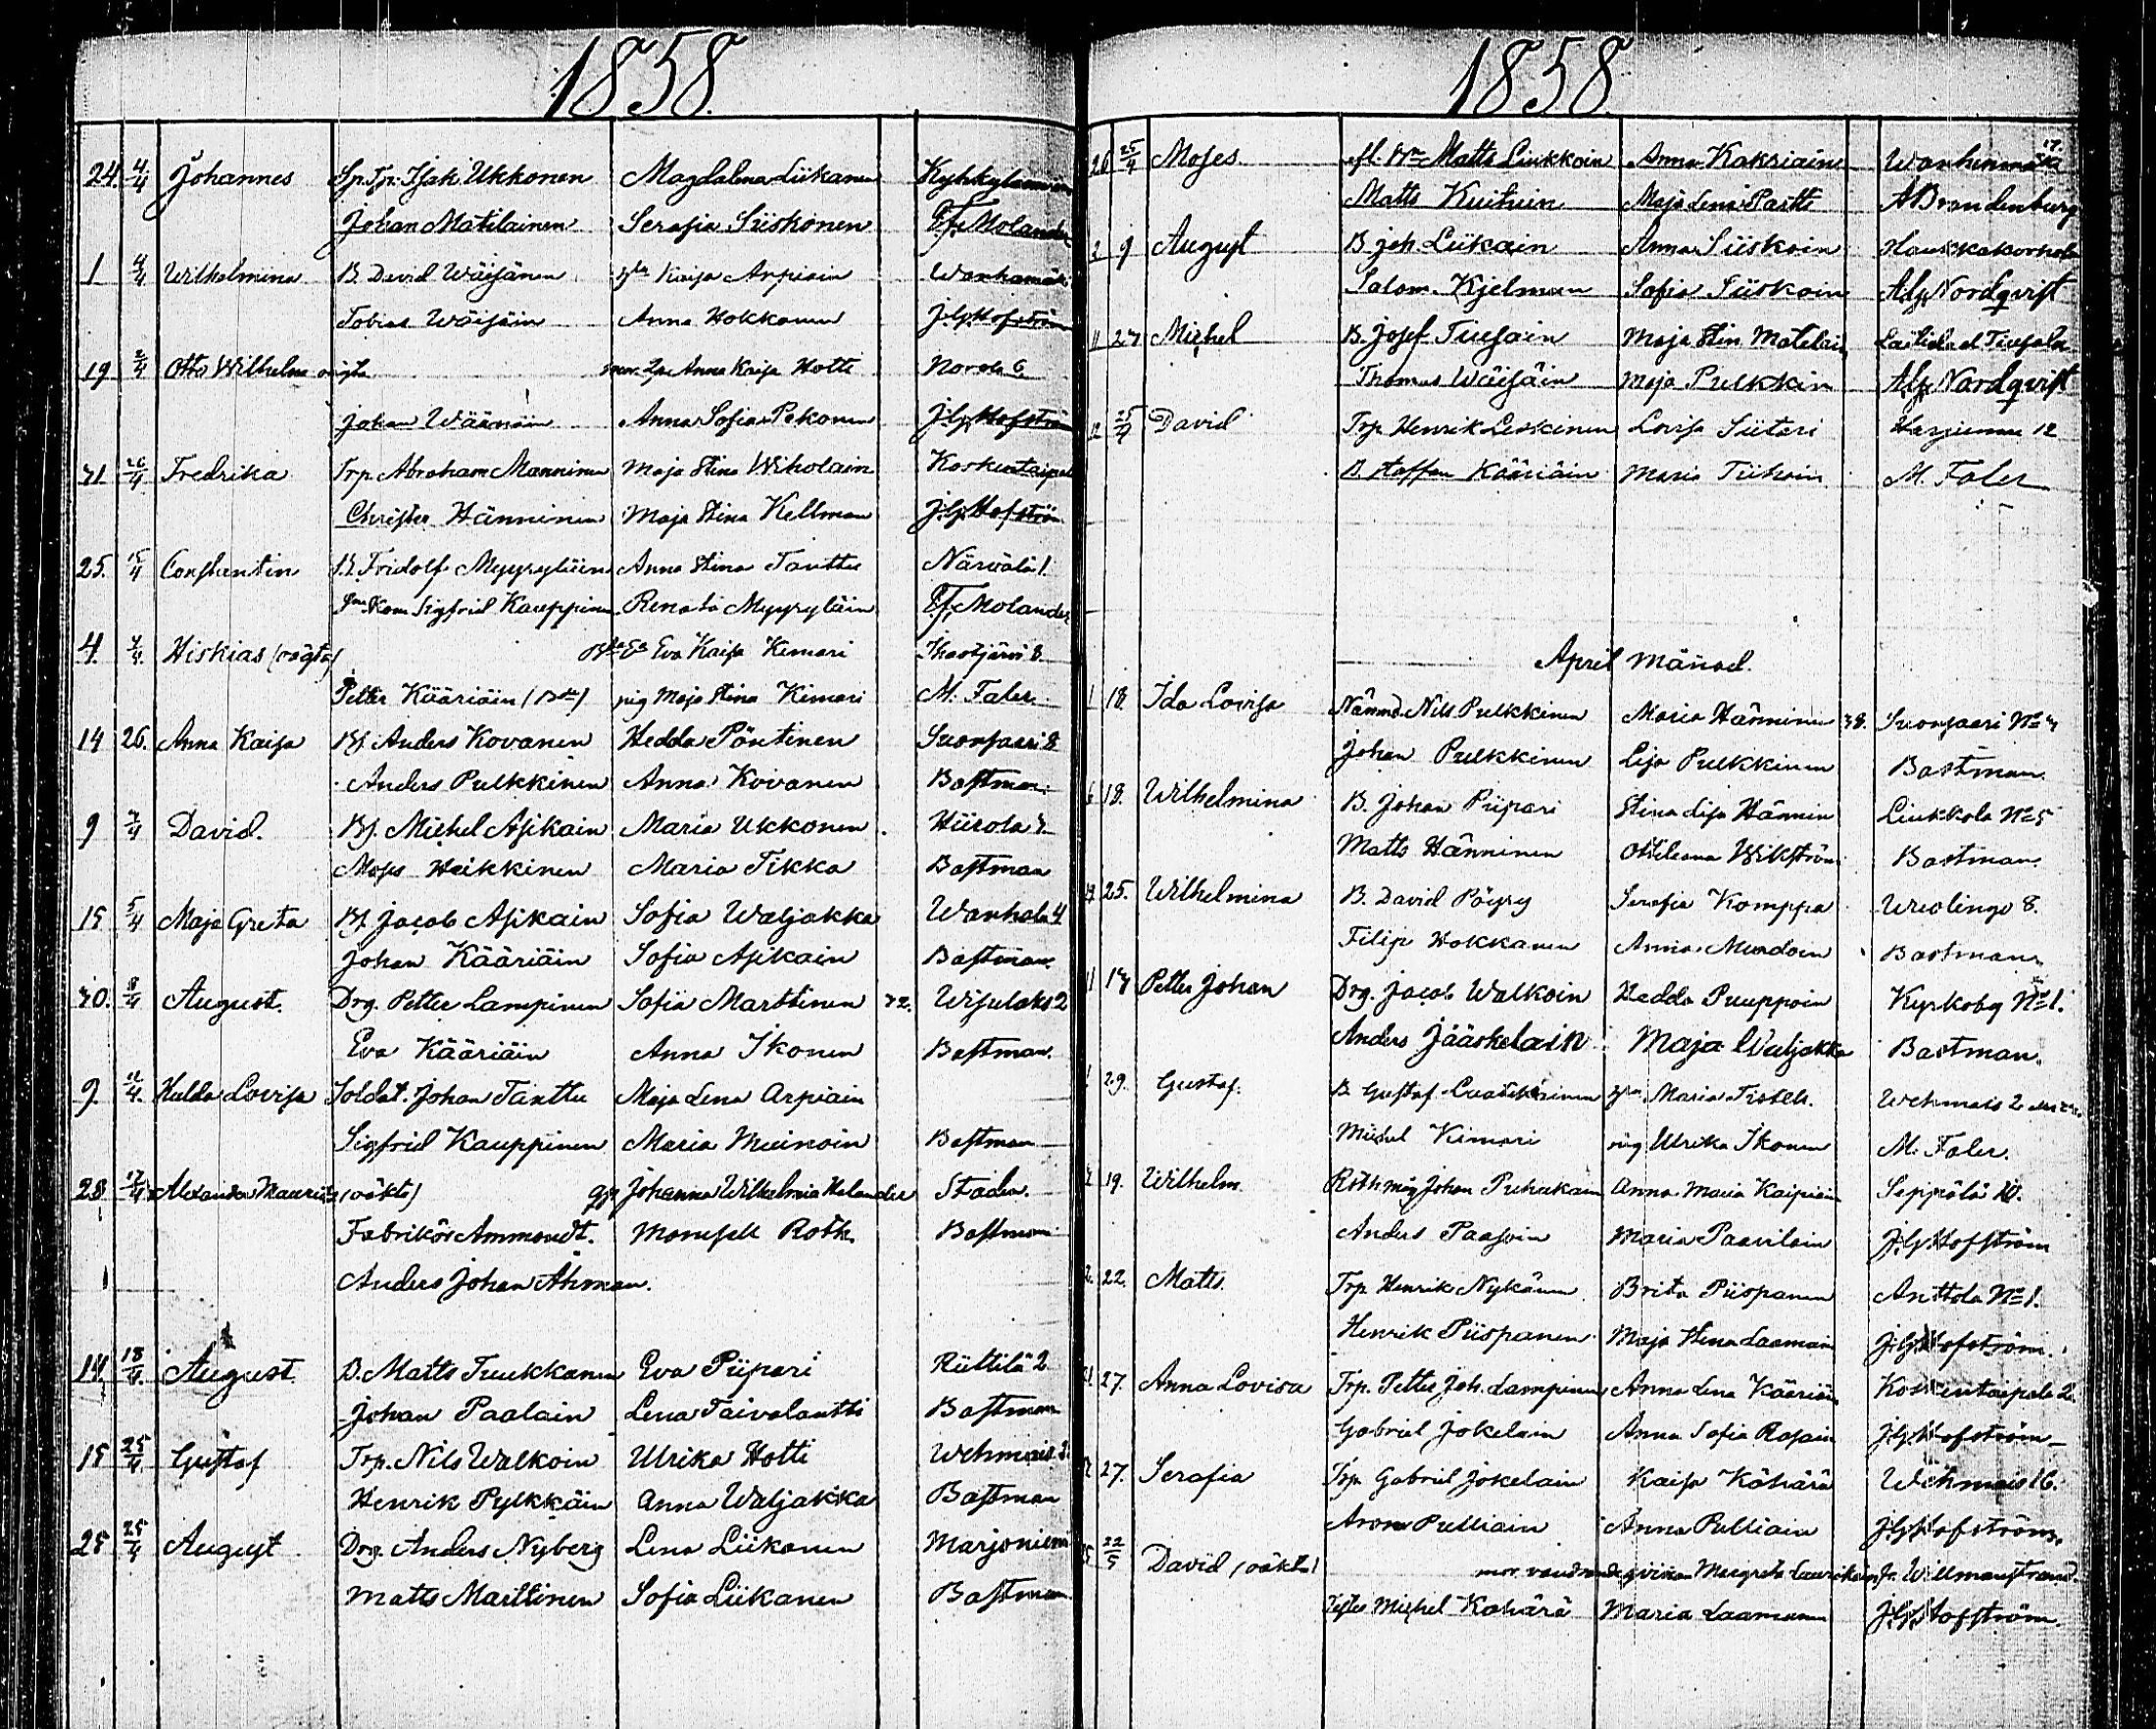 1858.
24. 4/4 Johannes Sp. Tp. Isak Ukkonen Magdalena Liikanen
Johan Matilainen Serafia Siiskonen F. Molander
1 4/4 Wilhelmina B. David Wäisänen Kaisa Arpiain Wanhamäki
Tobias Wäisäin Anna Hokkanen J.G. Hofström
19 2/4 Otto Wilhelm oägta Anna Kaisa Hotti Norola 6
Johan Wäänäin Anna Sofia Pekonen J.G. Hofström
31 26/4 Fredrika Trp. Abraham Manninen Maja Stina Wiholain Koskentaipale
Christer Hänninen Maja Stina Kellman J.G. Hofström
25. 15/4 Constantin B. Fridolf Myyryläin Anna Stina Tanttu Närvälä 1.
Sigfrid Kauppinen Renata Myyryläin F. Molander
4. 4/4. Hiskias (oägta) Eva Kaisa Kimari Ihastjärvi 8
Petter Kääriäin pig Maja Stina Kimari M. Faler
14 26. Anna Kaisa Bf. Anders Kovanen Hedda Pöntinen Suonsaari 8
Anders Pulkkinen Anna Kovanen Bastman
9 4/4 David. Bf. Michel Asikain Maria Ukkonen Hiirola
Moses Heikkinen Maria Tikka Bastman
15 5/4 Maja Greta Bf. Jacob Asikain Sofia Waljakka Wanhala 4
Johan Kääriäin Sofia Asikain Bastman
30. 8/4 August. Drg. Petter Lampinen Sofia Marttinen 32. Wisulaks 2
Eva Kääriäin Anna Ikonen Bastman.
9. 11/4. Hulda Lovisa Soldat. Johan Tanttu Maja Lena Arpiain
Sigfrid Kauppinen Maria Muinoin Bastman
28 17/4 Alexander Mauritz (oäkta) Johanna Wilhelmia Helander Staden.
Fabrikör Ammondt. Mamsell Roth. Bastman
Anders Johan Åhman.
14. 18/4. August. B. Matts Tuukkanen Eva Piipari Riittilä 2
Johan Paalain Lena Taivalantti Bastman
15 25/4 Gustaf Trp. Nils Walkoin Ulrika Hotti Wehmais
Henrik Pylkkäin Anna Waljakka Bastman
25 25/4 August Drg. Anders Nyberg Lena Liikanen Marjoniemi
Matts Marttinen Sofia Liikanen Bastman
1858.
17.
26 25/4 Moses Matts Liukkoin Anna Kakriain Wanhanmäki
Matts Kuituin Maja Lena Partti A Brandenburg
9 August B. Joh. Liikain Anna Siiskoin Haukkakorhola
Salom. Kjelman Sofia Siiskoin Alf. Nordqvist
11 27 Michel B. Josef Tuusain Maja Stin Matilain
Thomas Wäisäin Maja Pulkkin Alf. Nordqvist
12 25/4 David Trp Henrik Leskinen Lovisa Siitari Harjumaa 12
B. Staffan Kääriäin Maria Tiihoin M. Faler
April månad.
1 18. Ida Lovisa Nämnd. Nils Pulkkinen Maria Hänninen 38. Suonsaari No 4
Johan Pulkkinen Lisa Pulkkinen Bastman.
6 18. Wilhelmina B. Johan Piipari Stina Lisa Hännin Liukkola No 5
Matts Hänninen Otteliana Wikström Bastman.
25. Wilhelmina B. David Pöyry Serafia Komppa Ureolinge 8.
Filip Hokkanen Anna Bastman.
11 14 Petter Johan Drg. Jacob Walkoin Hedda Puuppoin Kyrkoby No 1.
Anders Jääskelain Maja Waljakka Bastman.
29. Gustaf. B. Gustaf Maria Wehmais 2
Michel Kimari pig Ulrika Ikonen M. Faler.
19. Wilhelm. Johan Puhakain Anna Maria Kaipiain Seppälä 10.
Anders Paasoin Maria Paavilain J.G. Hofström
22. Matts. Trp Henrik Nykänen Brita Piispanen Anttola No 1.
Henrik Piispanen Maja Stina Laamain J.G. Hofström.
27. Anna Lovisa Trp. Petter Joh. Lampinen Anna Lena Kääriäin Koskentaipale 2.
Gabriel Jokelain Anna Sofia J.G. Hofström
27. Serafia Trp. Gabriel Jokelain Kaisa Kähärä Wehmais 16.
Aron Pulliain Anna Pulliain J.G. Hofström.
22/5 David (oäkta) mor. Margreta Laurikain fr. Willmanstrand.
Michel Kähärä Maria Laamanen J.G. Hofström.